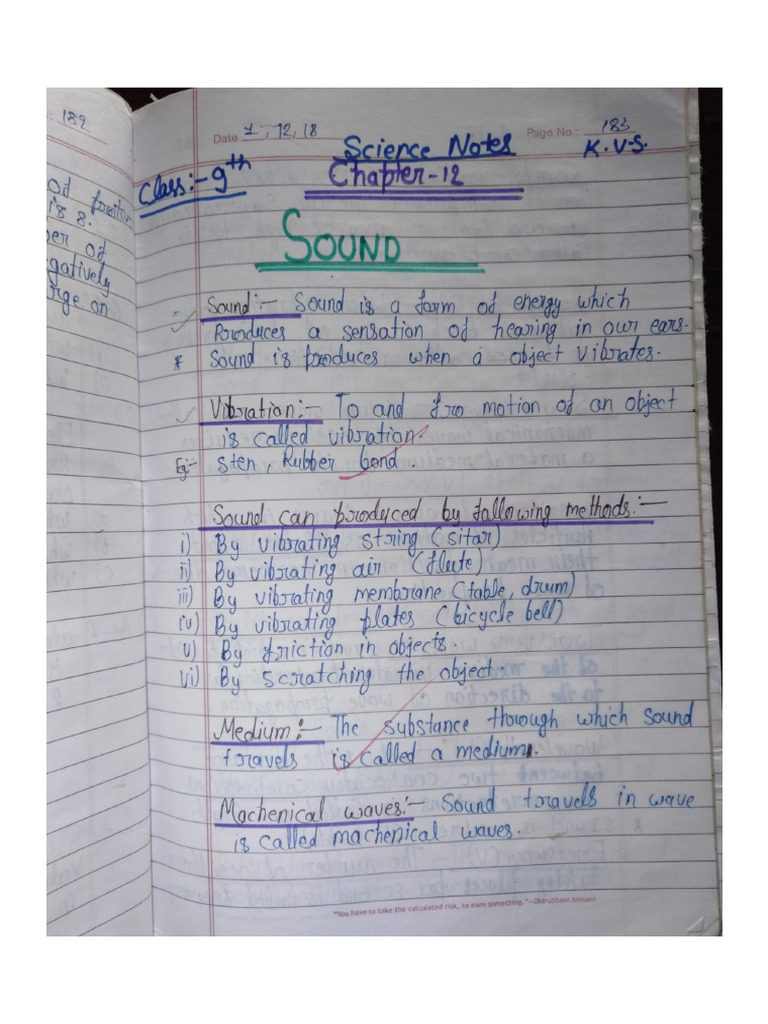 : 182
Date 1, 12, 18
Page No.: 183
Science Notes
K.V.S.
Class:- 9th
Chapter-12
SOUND
is 8.
gatively
Sound:- Sound is a form of energy which
Produces a sensation of hearing in our ears.
* Sound is produces when a object vibrates.
Vibration:- To and fro motion of an object
is called vibration.
Eg:- sten, Rubber bond.
Sound can produced by following methods:-
i) By vibrating string (sitar)
ii) By vibrating air (flute)
iii) By vibrating membrane (table, drum)
iv) By vibrating plates (bicycle bell)
v) By friction in objects.
vi) By scratching the object.
Medium:- The substance through which sound
travels is called a medium.
Machenical waves:- Sound travels in wave
is called machenical waves.
"You have to take the calculated risk, to earn something." -Dhirubhani Ambani